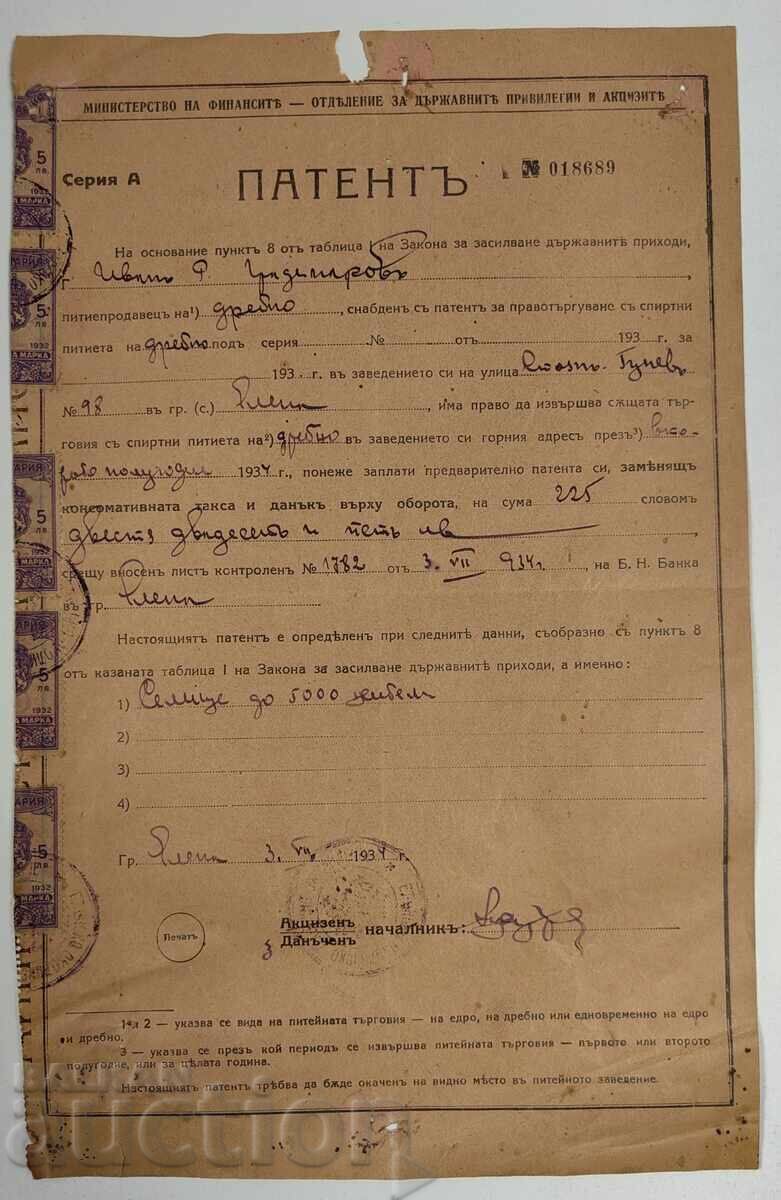 МИНИСТЕРСТВО НА ФИНАНСИТѢ — ОТДѢЛЕНИЕ ЗА ДЪРЖАВНИТѢ ПРИВИЛЕГИИ И АКЦИЗИТѢ
Серия А ПАТЕНТЪ № 018689
На основание пунктъ 8 отъ таблица I на Закона за засилване държавнитѣ приходи,
г. Иванъ
питиепродавецъ на ¹) дребно, снабденъ съ патентъ за правотъргуване съ спиртни
питиета на дребно подъ серия № отъ 193 г. за
193 г. въ заведението си на улица Стоянъ Гуневъ
№ 98 въ гр. (с.) Елена, има право да извършва сѫщата тър-
говия съ спиртни питиета на ²) дребно въ заведението си горния адресъ презъ ³) вто-
рото полугодие 1934 г., понеже заплати предварително патента си, замѣнящъ
консомативната такса и данъкъ върху оборота, на сума 225 словомъ
двеста двадесеть и петь лв
срещу вносенъ листъ контроленъ № 1782 отъ 3. VII 934 г., на Б. Н. Банка
въ гр. Елена
Настоящиятъ патентъ е опредѣленъ при следнитѣ данни, съобразно съ пунктъ 8
отъ казаната таблица I на Закона за засилване държавнитѣ приходи, а именно:
1) Селище до 5000 жители
2)
3)
4)
Гр. Елена 3. VII. 1934 г.
Печатъ
Акцизенъ
Данъченъ началникъ:
1 и 2 — указва се вида на питейната търговия — на едро, на дребно или едновременно на едро
и дребно.
3 — указва се презъ кой периодъ се извършва питейната търговия — първото или второто
полугодие, или за цѣлата година.
Настоящиятъ патентъ трѣбва да бѫде окаченъ на видно мѣсто въ питейното заведение.
5
ЛВ.
1932
МАРКА
АРИЯ
5
ЛВ.
1932
А МАРКА
5
1932
АРИЯ
5
ЛВ.
1932
А МАРКА
АРИЯ
5
1932
МАРКА
auction